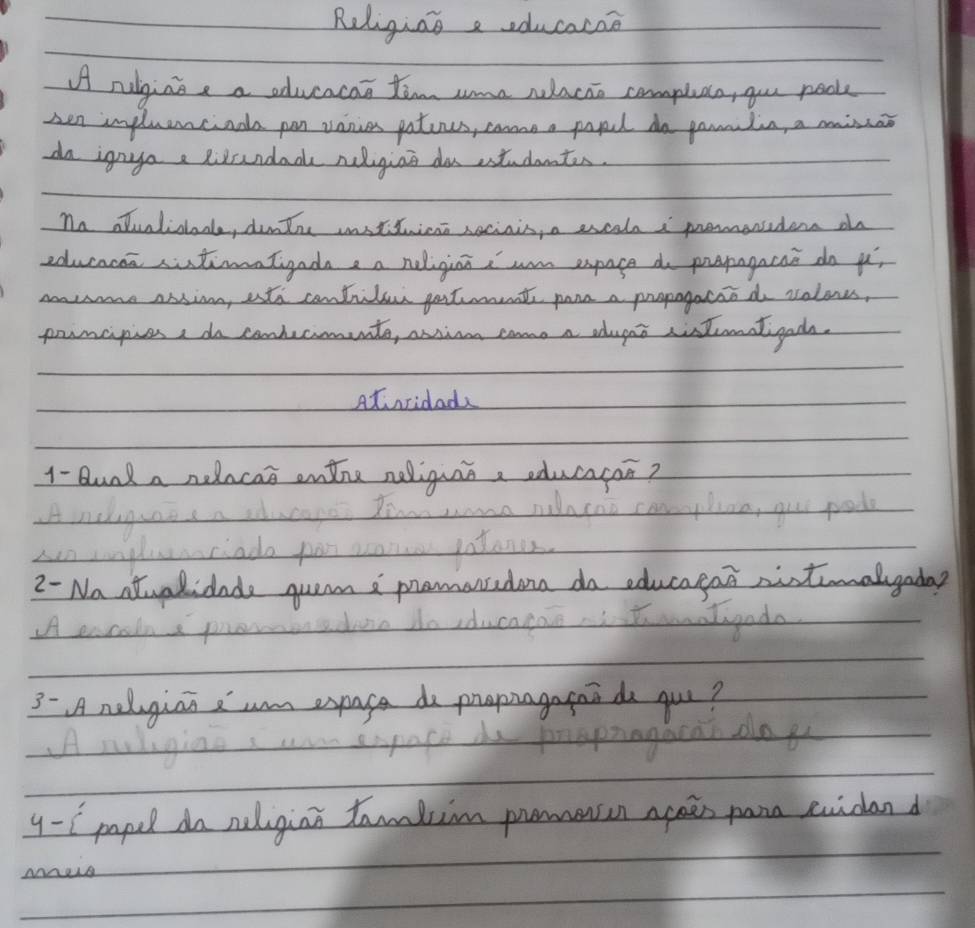 Religiaõ e educacaõ
A religiaõ e a educacaõ têm uma relacaõ complexa, que pode
ser influenciada por vários fatores, como o papel da familia, a missaõ
da igreja e liberdade religiaõ dos estudantes.
Na atualidade, dentre instituicaõ sociais, a escola é promovedora da
educacaõ sistematizada e a religiaõ é um espaço de propagacaõ da fé,
mesmo assim, esta contribui fortemente para a propagacaõ de valores,
principios e do conhecimento, assim como a educaõ sistematizada.
Atividade
1- Qual a relacaõ entre religiaõ e educaçaõ?
A religiaõ e a educaçaõ têm uma relaçaõ complexa, que pode
ser influenciado por varios fatores.
2- Na atualidade quem é promovedora da educaçaõ sistematizada?
A escola é promovedora da educaçaõ sistematizada
3- A religiaõ é um espaço de propragaçaõ de que?
A religiaõ é um espaço de propragacaõ da fé
4- É papel da religiaõ também promover açoẽs para cuidar d
meio